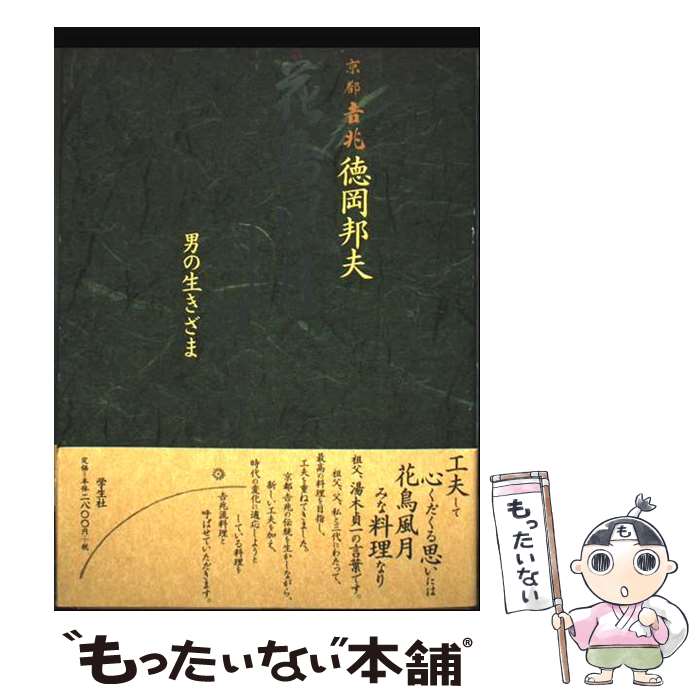 京都吉兆
徳岡邦夫
男の生きざま
工夫して
心くだくる思いには
花鳥風月
みな料理なり
祖父、湯木貞一の言葉です。
祖父、父、私と三代にわたって、
最高の料理を目指し、
工夫を重ねてきました。
京都吉兆の伝統を生かしながら、
新しい工夫を加え、
時代の変化に適応しようと
している料理を
吉兆流料理と
呼ばせていただきます。
学生社
定価=本体二八〇〇円+税
もったいない
“もったいない本舗®